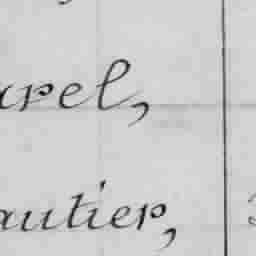 arel,
autier,